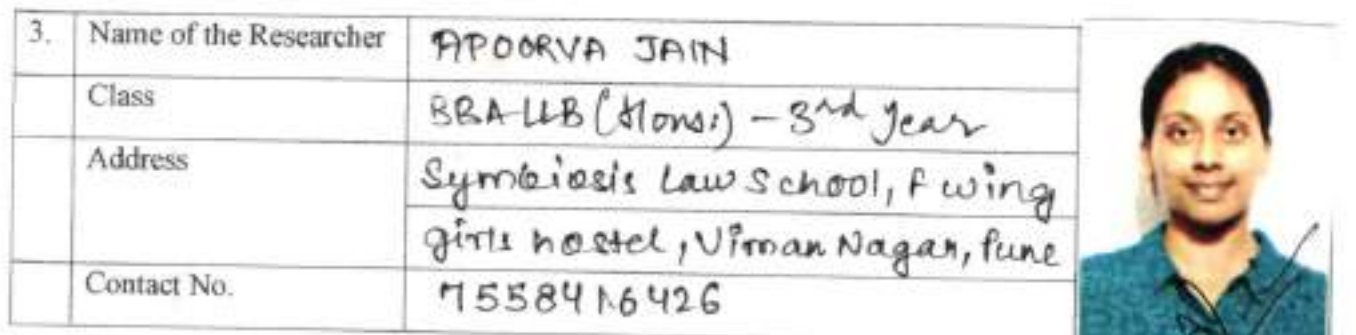 3. Name of the Researcher APOORVA JAIN
Class BBA-LLB (Hons:) - 3rd Year
Address Symbiosis Law School, F wing
girls hostel, Viman Nagar, Pune
Contact No.